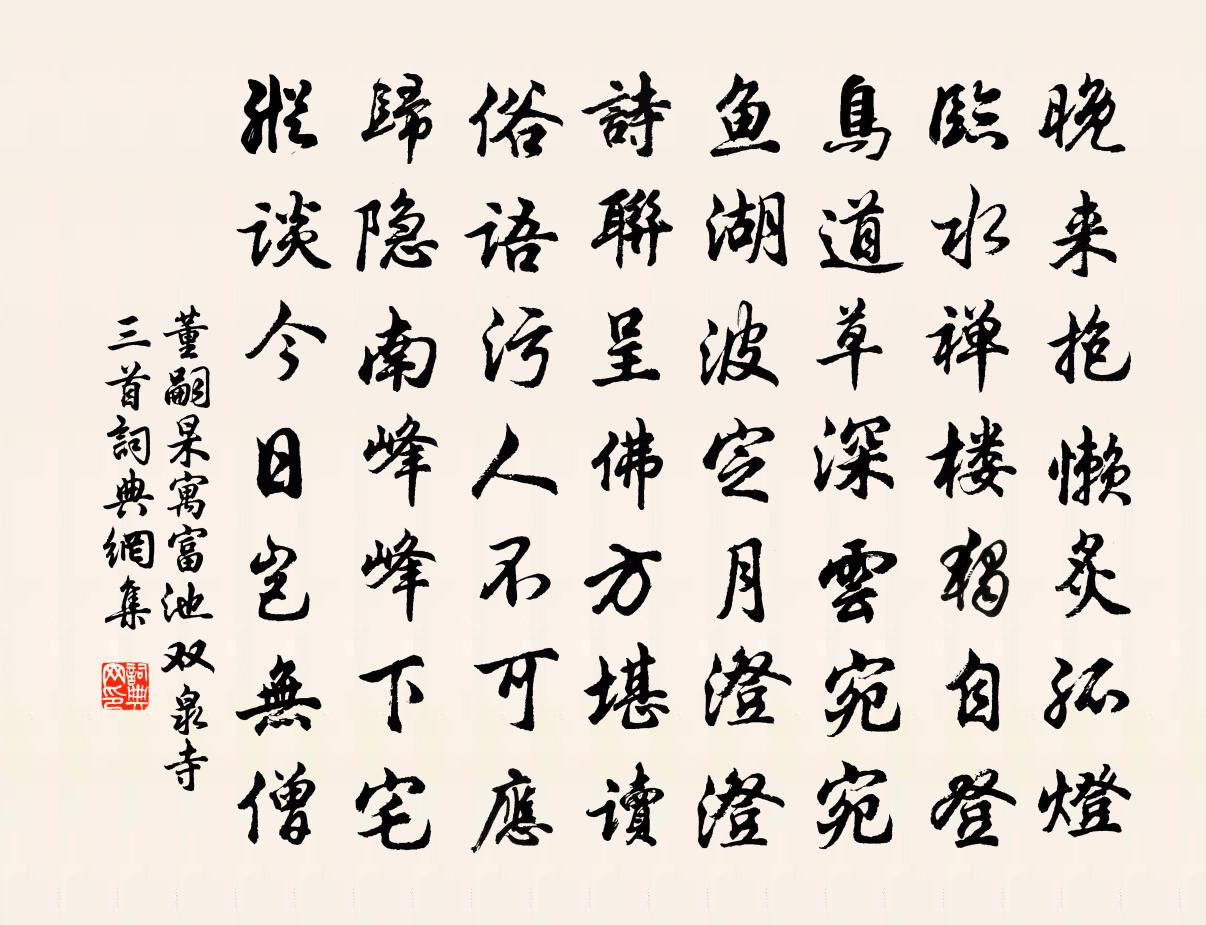 晚来抱懒炙孤燈
臨水禅楼獨自登
鳥道草深雲宛宛
鱼湖波定月澄澄
詩聯呈佛方堪读
俗语污人不可應
歸隐南峰峰下宅
縱谈今日岂無僧
董嗣杲寓富池双泉寺
三首詞典網集
詞典
网印